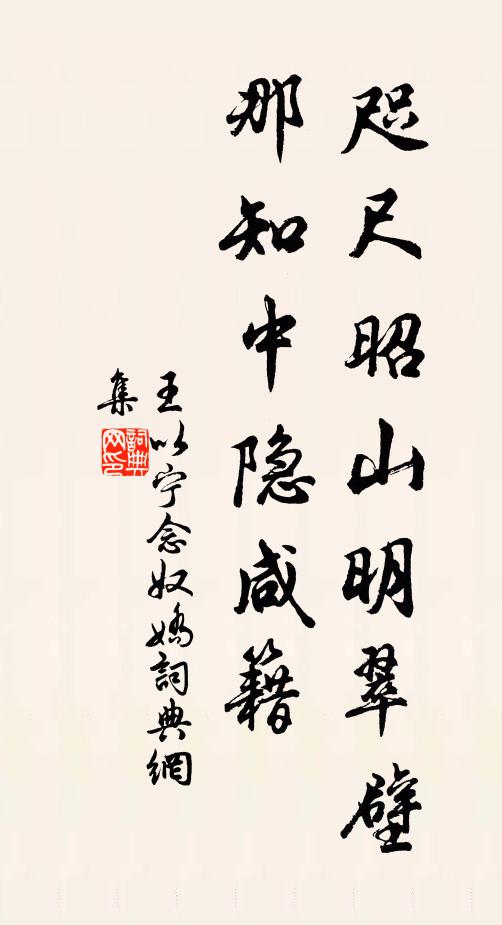 咫尺昭山明翠壁
那知中隐咸籍
王以宁念奴嬌詞典網
集
詞典网印